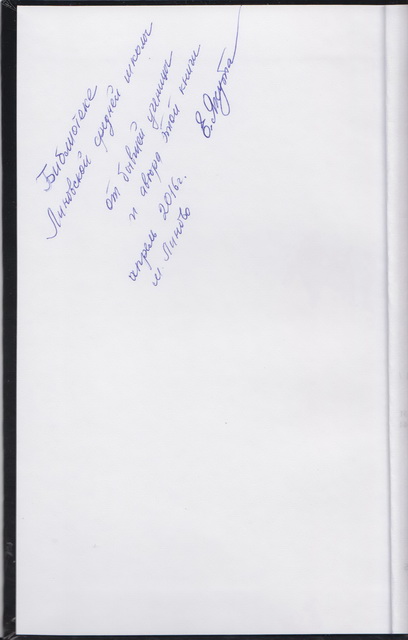 Библиотеке
Линовской средней школы
от бывшей ученицы
и автора этой книги
апрель 2016г.
м Линово